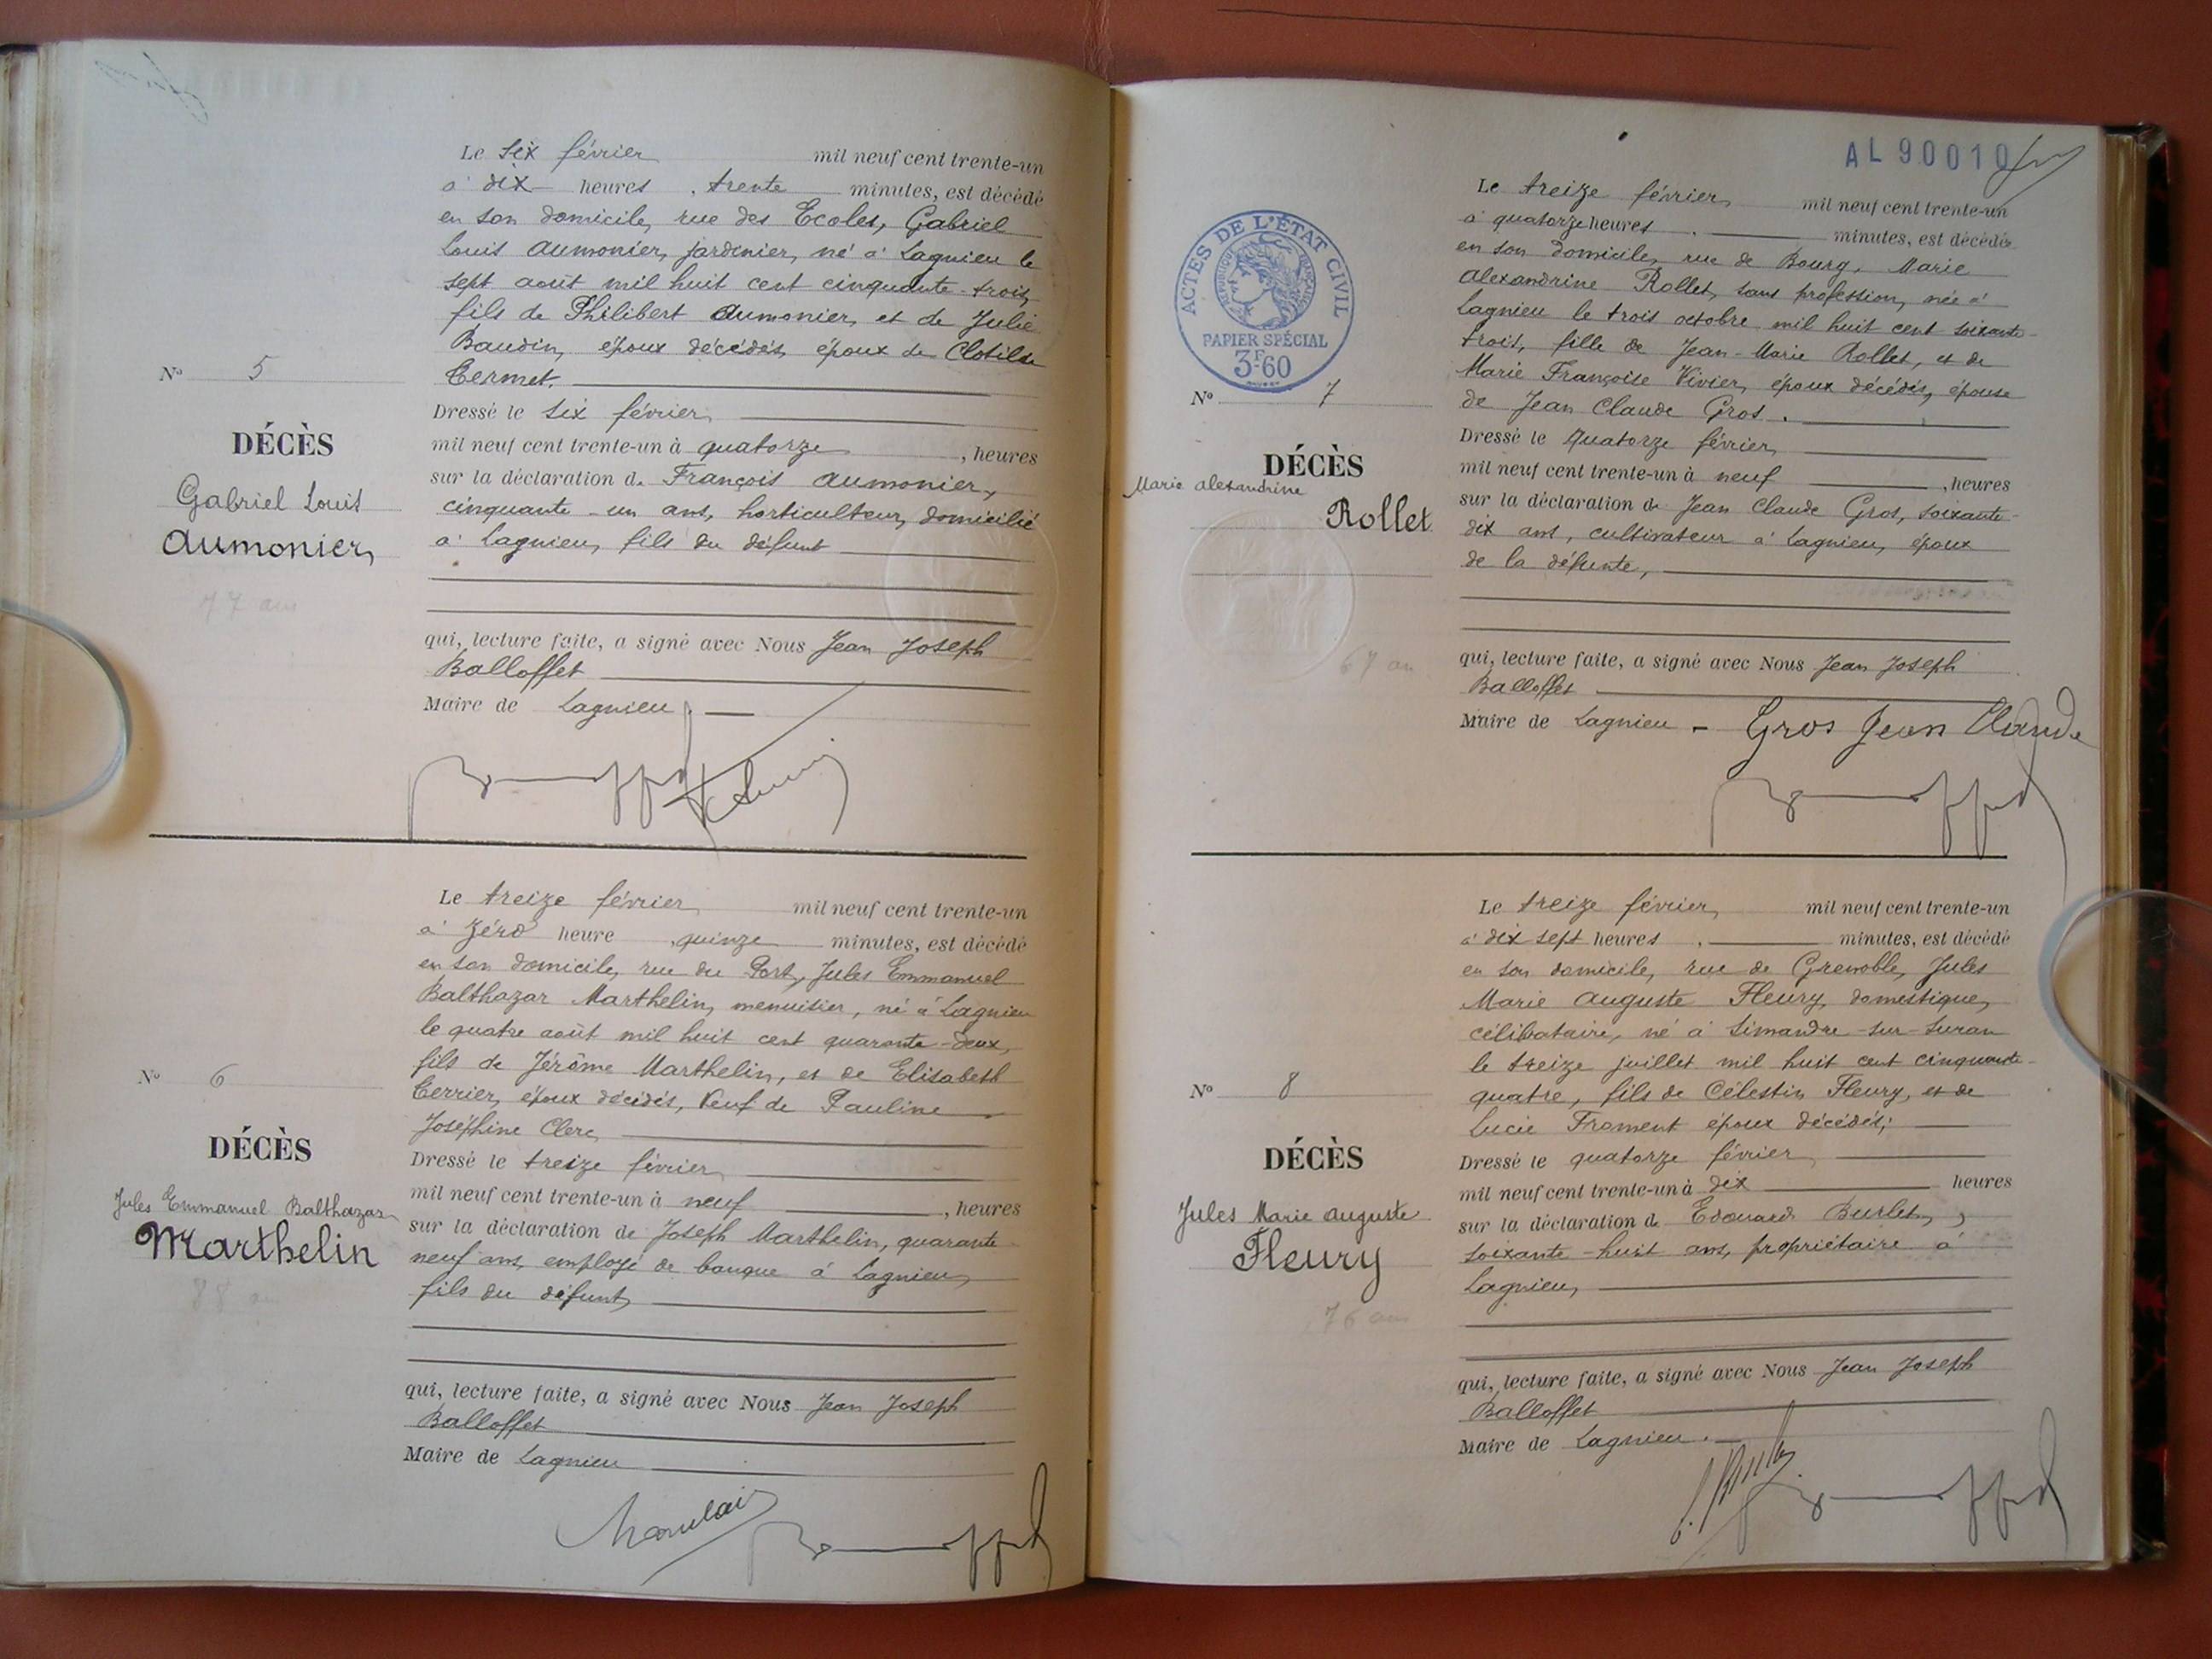 Le six février mil neuf cent trente-un
à dix heures, trente minutes, est décédé
en son domicile, rue des Ecoles, Gabriel
Louis Aumonier, jardinier, né à Lagnieu le
sept août mil huit cent cinquante-trois,
fils de Philibert Aumonier, et de Julie
Baudin, époux décédés, époux de Clotilde
Termet.
N° 5
Dressé le six février
DÉCÈS
mil neuf cent trente-un à quatorze, heures
Gabriel Louis
sur la déclaration de François Aumonier,
Aumonier
cinquante-un ans, horticulteur, domicilié
à Lagnieu, fils du défunt
77 ans
qui, lecture faite, a signé avec Nous Jean Joseph
Balloffet
Maire de Lagnieu.
Le treize février mil neuf cent trente-un
à zéro heure, quinze minutes, est décédé
en son domicile, rue du Port, Jules Emmanuel
Balthazar Marthelin, menuisier, né à Lagnieu
le quatre août mil huit cent quarante-deux,
fils de Jérôme Marthelin, et de Elisabeth
Terrier, époux décédés, Veuf de Pauline
Joséphine Clerc
N° 6
DÉCÈS
Dressé le treize février
mil neuf cent trente-un à neuf, heures
Jules Emmanuel Balthazar
Marthelin
sur la déclaration de Joseph Marthelin, quarante
neuf ans, employé de banque à Lagnieu,
fils du défunt,
88 ans
qui, lecture faite, a signé avec Nous Jean Joseph
Balloffet
Maire de Lagnieu
AL 90010
ACTES DE L'ÉTAT CIVIL
RÉPUBLIQUE FRANÇAISE
PAPIER SPÉCIAL
3F60
Le treize février mil neuf cent trente-un
à quatorze heures, minutes, est décédée
en son domicile, rue de Bourg, Marie
Alexandrine Rollet, sans profession, née à
Lagnieu le trois octobre mil huit cent soixante-
trois, fille de Jean-Marie Rollet, et de
Marie Françoise Vivier, époux décédés, épouse
de Jean Claude Gros.
N° 7
DÉCÈS
Marie Alexandrine
Rollet
Dressé le quatorze février
mil neuf cent trente-un à neuf, heures
sur la déclaration de Jean Claude Gros, soixante-
dix ans, cultivateur à Lagnieu, époux
de la défunte,
67 ans
qui, lecture faite, a signé avec Nous Jean Joseph
Balloffet
Maire de Lagnieu - Gros Jean Claude
Le treize février mil neuf cent trente-un
à dix sept heures, minutes, est décédé
en son domicile, rue de Grenoble, Jules
Marie Auguste Fleury, domestique,
célibataire, né à Simandre-sur-Suran
le treize juillet mil huit cent cinquante-
quatre, fils de Célestin Fleury, et de
Lucie Froment époux décédés;
N° 8
DÉCÈS
Jules Marie Auguste
Fleury
Dressé le quatorze février
mil neuf cent trente-un à dix heures
sur la déclaration de Edouard Burlet,
soixante-huit ans, propriétaire à
Lagnieu,
76 ans
qui, lecture faite, a signé avec Nous Jean Joseph
Balloffet
Maire de Lagnieu.